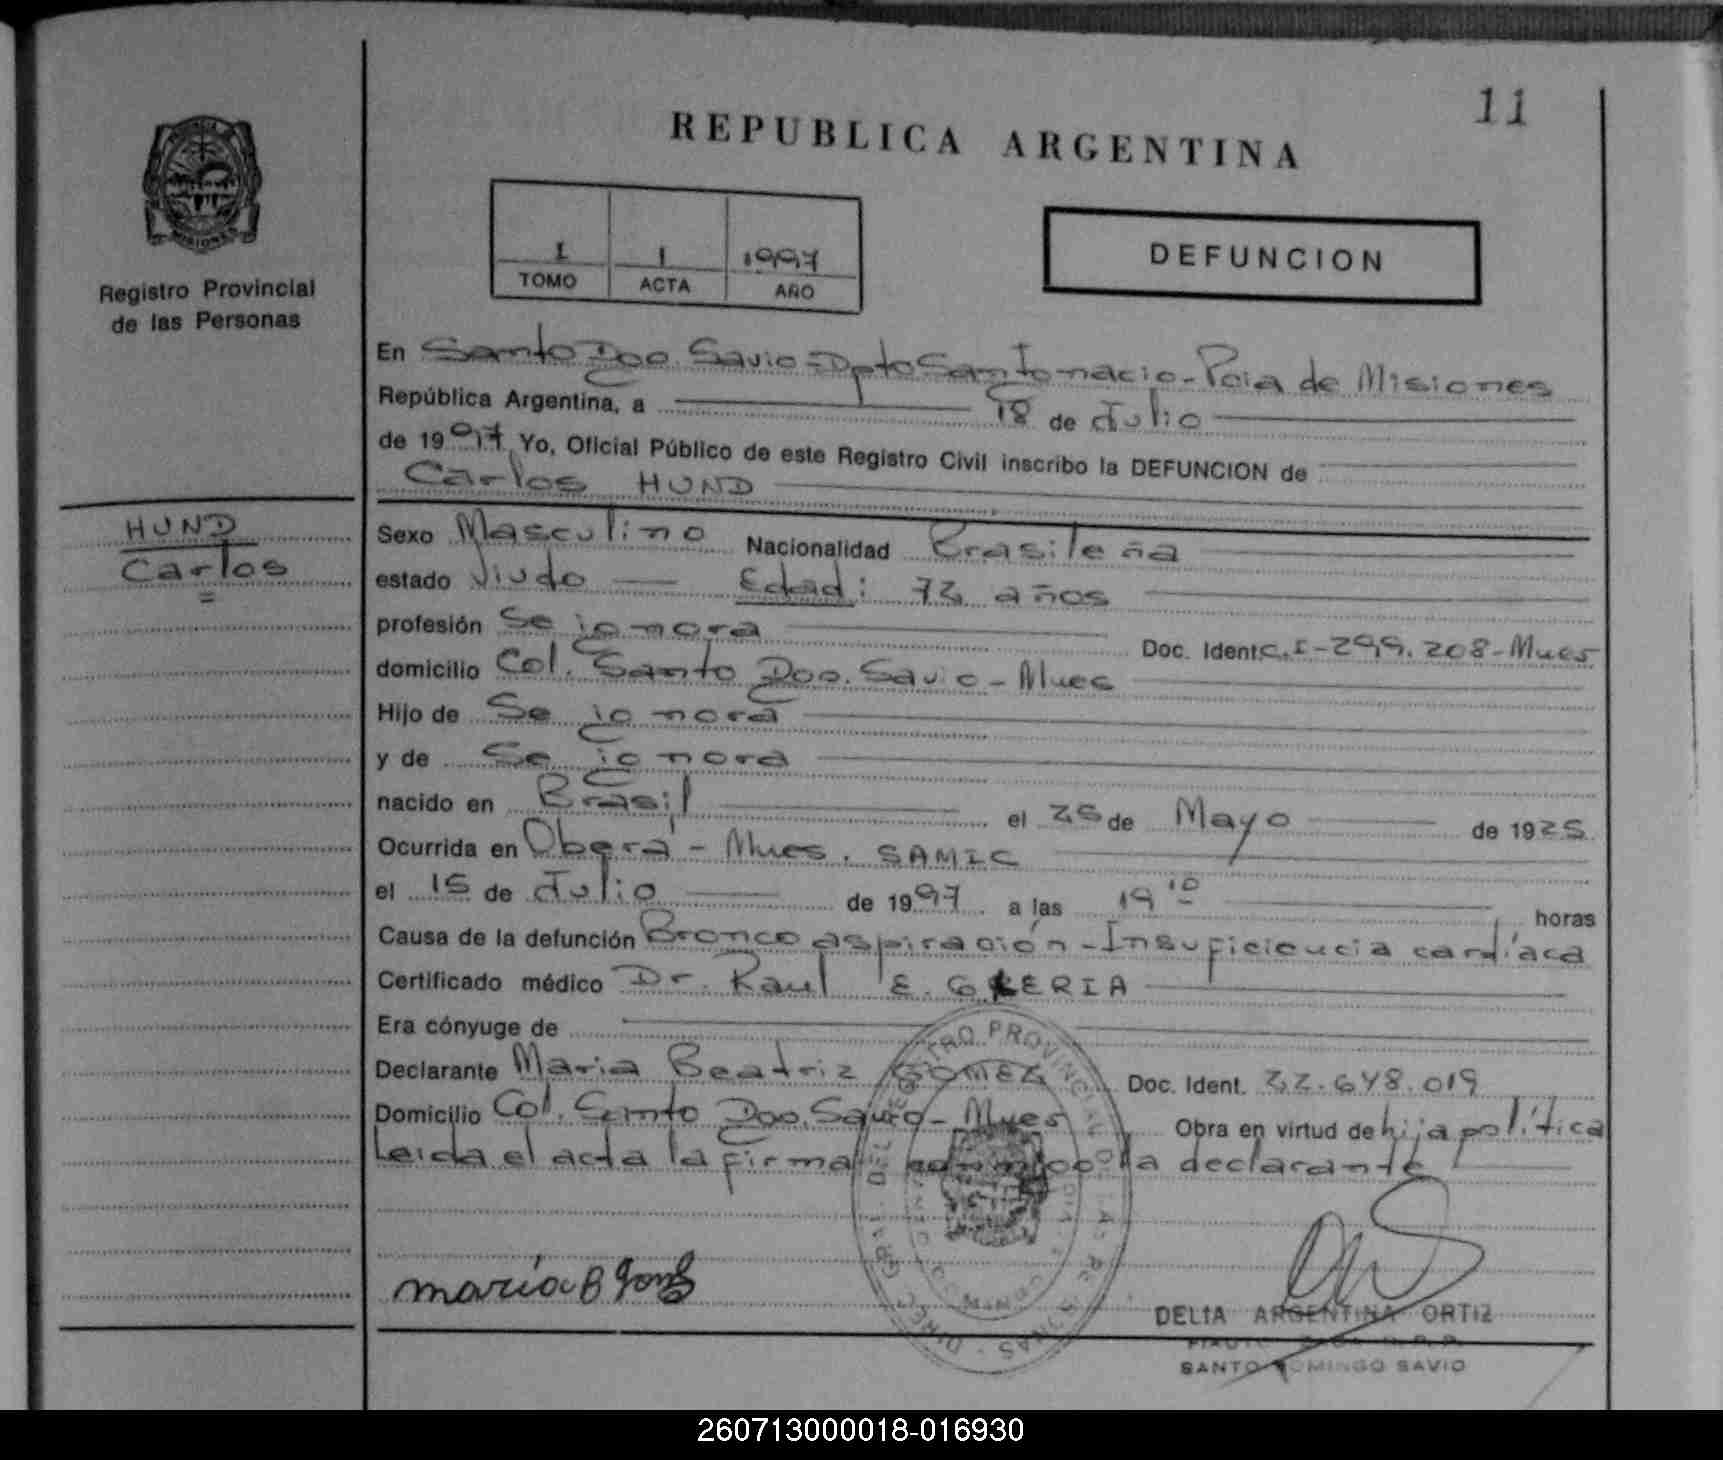 11
REPUBLICA ARGENTINA
PROVINCIA DE
MISIONES
Registro Provincial
de las Personas
1 1 1997
TOMO ACTA AÑO
DEFUNCION
En Santo Dgo. Savio-Dpto San Ignacio-Pcia de Misiones
República Argentina, a 18 de Julio
de 1997 Yo, Oficial Público de este Registro Civil inscribo la DEFUNCION de
Carlos HUND
HUND
Carlos
Sexo Masculino Nacionalidad Brasileña
estado Viudo Edad: 72 años
profesión Se ignora Doc. Ident. C.I-299.208-Mnes
domicilio Col. Santo Dgo. Savio-Mnes
Hijo de Se ignora
y de Se ignora
nacido en Brasil el 25 de Mayo de 1925
Ocurrida en Oberá-Mnes. SAMIC
el 15 de Julio de 1997 a las 19 10 horas
Causa de la defunción Bronco aspiración-Insuficiencia cardíaca
Certificado médico Dr. Raul E.
Era cónyuge de
Declarante Maria Beatriz GOMEZ Doc. Ident. 22.648.019
Domicilio Col. Santo Dgo. Savio-Mnes Obra en virtud de hija política
Leida el acta la firma conmigo la declarante
REGISTRO PROVINCIAL DE LAS PERSONAS
maría B Gomez
DELIA ARGENTINA ORTIZ
SANTO DOMINGO SAVIO
260713000018-016930